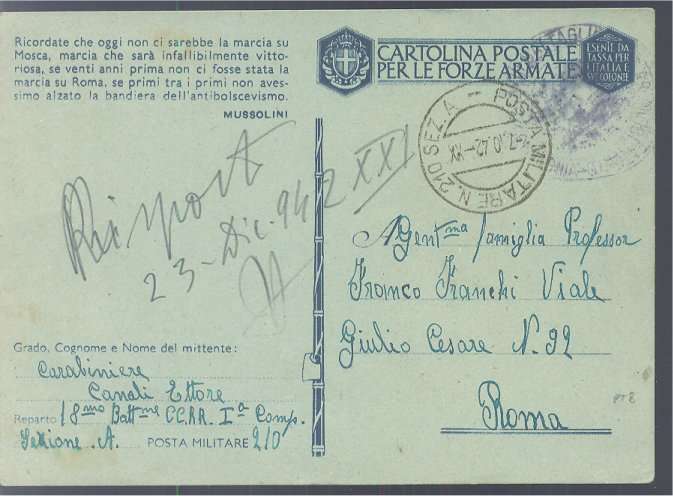 Ricordate che oggi non ci sarebbe la marcia su
Mosca, marcia che sarà infallibilmente vitto-
riosa, se venti anni prima non ci fosse stata la
marcia su Roma, se primi tra i primi non aves-
simo alzato la bandiera dell'antibolscevismo.
MUSSOLINI
CARTOLINA POSTALE
PER LE FORZE ARMATE
ESENTE DA
TASSA PER
L'ITALIA E
POSTA MILITARE N. 210 SEZ. A
Rispost
23 - Dic. 942 XXI
A Gent ma famiglia Professor
Franco Franchi Viale
Giulio Cesare N. 92
Roma
PT8
Grado, Cognome e Nome del mittente:
Carabiniere
Canali Ettore
Reparto 18 mo Batt ne CC.RR. Ia Comp.
Sezione A. POSTA MILITARE 210